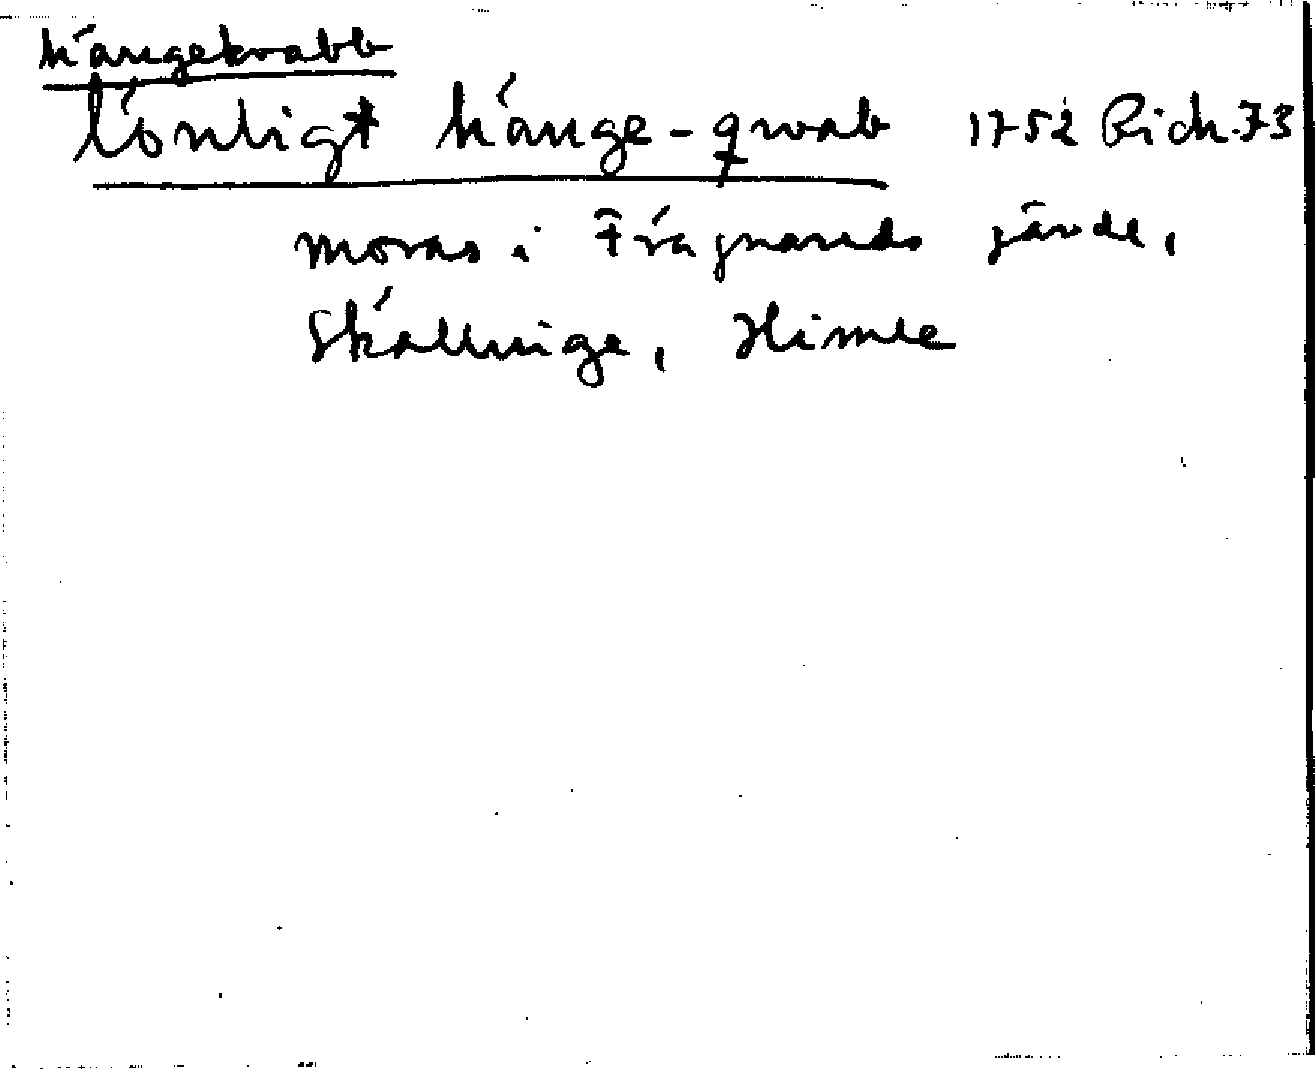 hängekvabb
lönligt hänge-qwab 1752 Rich. 73
moras i Frägnareds järde,
Skällinge, Himle